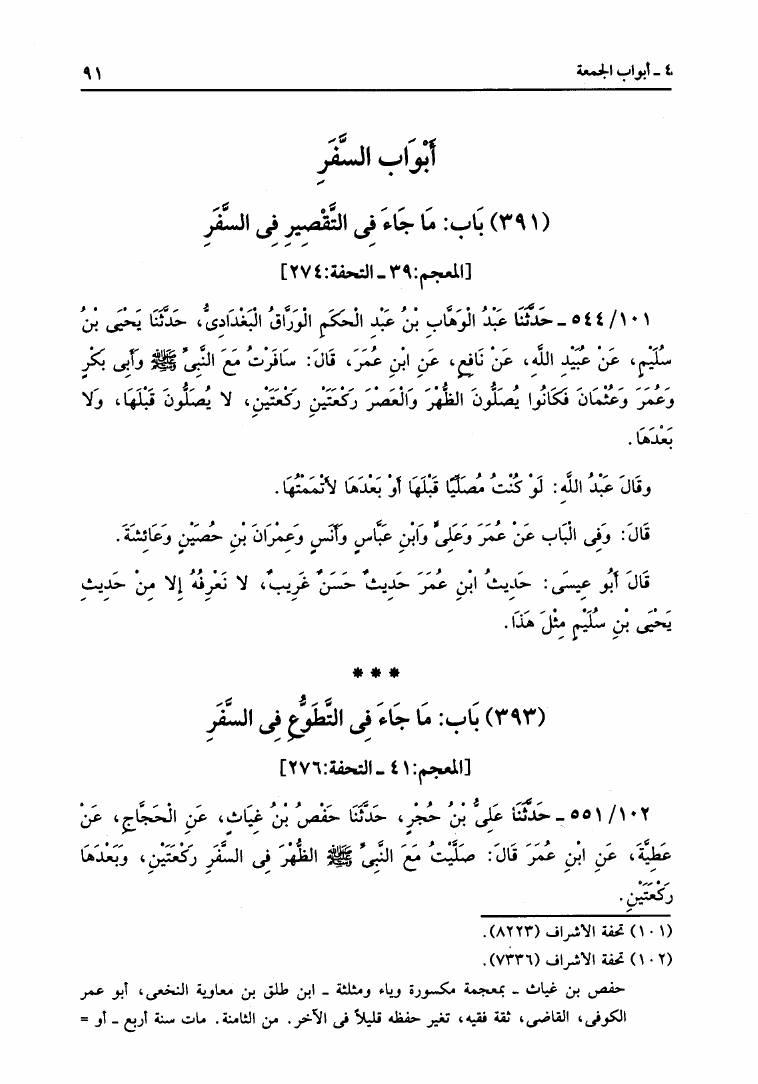 ٤ ـ أبواب الجمعة ٩١
أَبْوَاب السَّفَرِ
(٣٩١) بَاب: مَا جَاءَ فِى التَّقْصِيرِ فِى السَّفَرِ
[المعجم:٣٩ ـ التحفة:٢٧٤]
٥٤٤/١٠١ ـ حَدَّثَنَا عَبْدُ الْوَهَّابِ بْنُ عَبْدِ الحَكَمِ الْوَرَّاقُ الْبَغْدَادِىُّ، حَدَّثَنَا يَحْيَى بْنُ
سُلَيْمٍ، عَنْ عُبَيْدِ اللَّهِ، عَنْ نَافِعٍ، عَنِ ابْنِ عُمَرَ، قَالَ: سَافَرْتُ مَعَ النَّبِىِّ ﷺ وَأَبِى بَكْرٍ
وَعُمَرَ وَعُثْمَانَ فَكَانُوا يُصَلُّونَ الظُّهْرَ وَالْعَصْرَ رَكْعَتَيْنِ رَكْعَتَيْنِ، لا يُصَلُّونَ قَبْلَهَا، وَلا
بَعْدَهَا.
وقَالَ عَبْدُ اللَّهِ: لَوْ كُنْتُ مُصَلِّيًا قَبْلَهَا أَوْ بَعْدَهَا لأَتْمَمْتُهَا.
قَالَ: وَفِى الْبَاب عَنْ عُمَرَ وَعَلِىٍّ وَابْنِ عَبَّاسٍ وَأَنَسٍ وَعِمْرَانَ بْنِ حُصَيْنٍ وَعَائِشَةَ.
قَالَ أَبُو عِيسَى: حَدِيثُ ابْنِ عُمَرَ حَدِيثٌ حَسَنٌ غَرِيبٌ، لا نَعْرِفُهُ إِلا مِنْ حَدِيثِ
يَحْيَى بْنِ سُلَيْمٍ مِثْلَ هَذَا.
* * *
(٣٩٣) بَاب: مَا جَاءَ فِى التَّطَوُّعِ فِى السَّفَرِ
[المعجم:٤١ ـ التحفة:٢٧٦]
٥٥١/١٠٢ ـ حَدَّثَنَا عَلِىُّ بْنُ حُجْرٍ، حَدَّثَنَا حَفْصُ بْنُ غِيَاثٍ، عَنِ الْحَجَّاجِ، عَنْ
عَطِيَّةَ، عَنِ ابْنِ عُمَرَ قَالَ: صَلَّيْتُ مَعَ النَّبِىِّ ﷺ الظُّهْرَ فِى السَّفَرِ رَكْعَتَيْنِ، وَبَعْدَهَا
رَكْعَتَيْنِ.
(١٠١) تحفة الأشراف (٨٢٢٣).
(١٠٢) تحفة الأشراف (٧٣٣٦).
حفص بن غياث ـ بمعجمة مكسورة وياء ومثلثة ـ ابن طلق بن معاوية النخعى، أبو عمر
الكوفى، القاضى، ثقة فقيه، تغير حفظه قليلاً فى الآخر. من الثامنة. مات سنة أربع ـ أو =